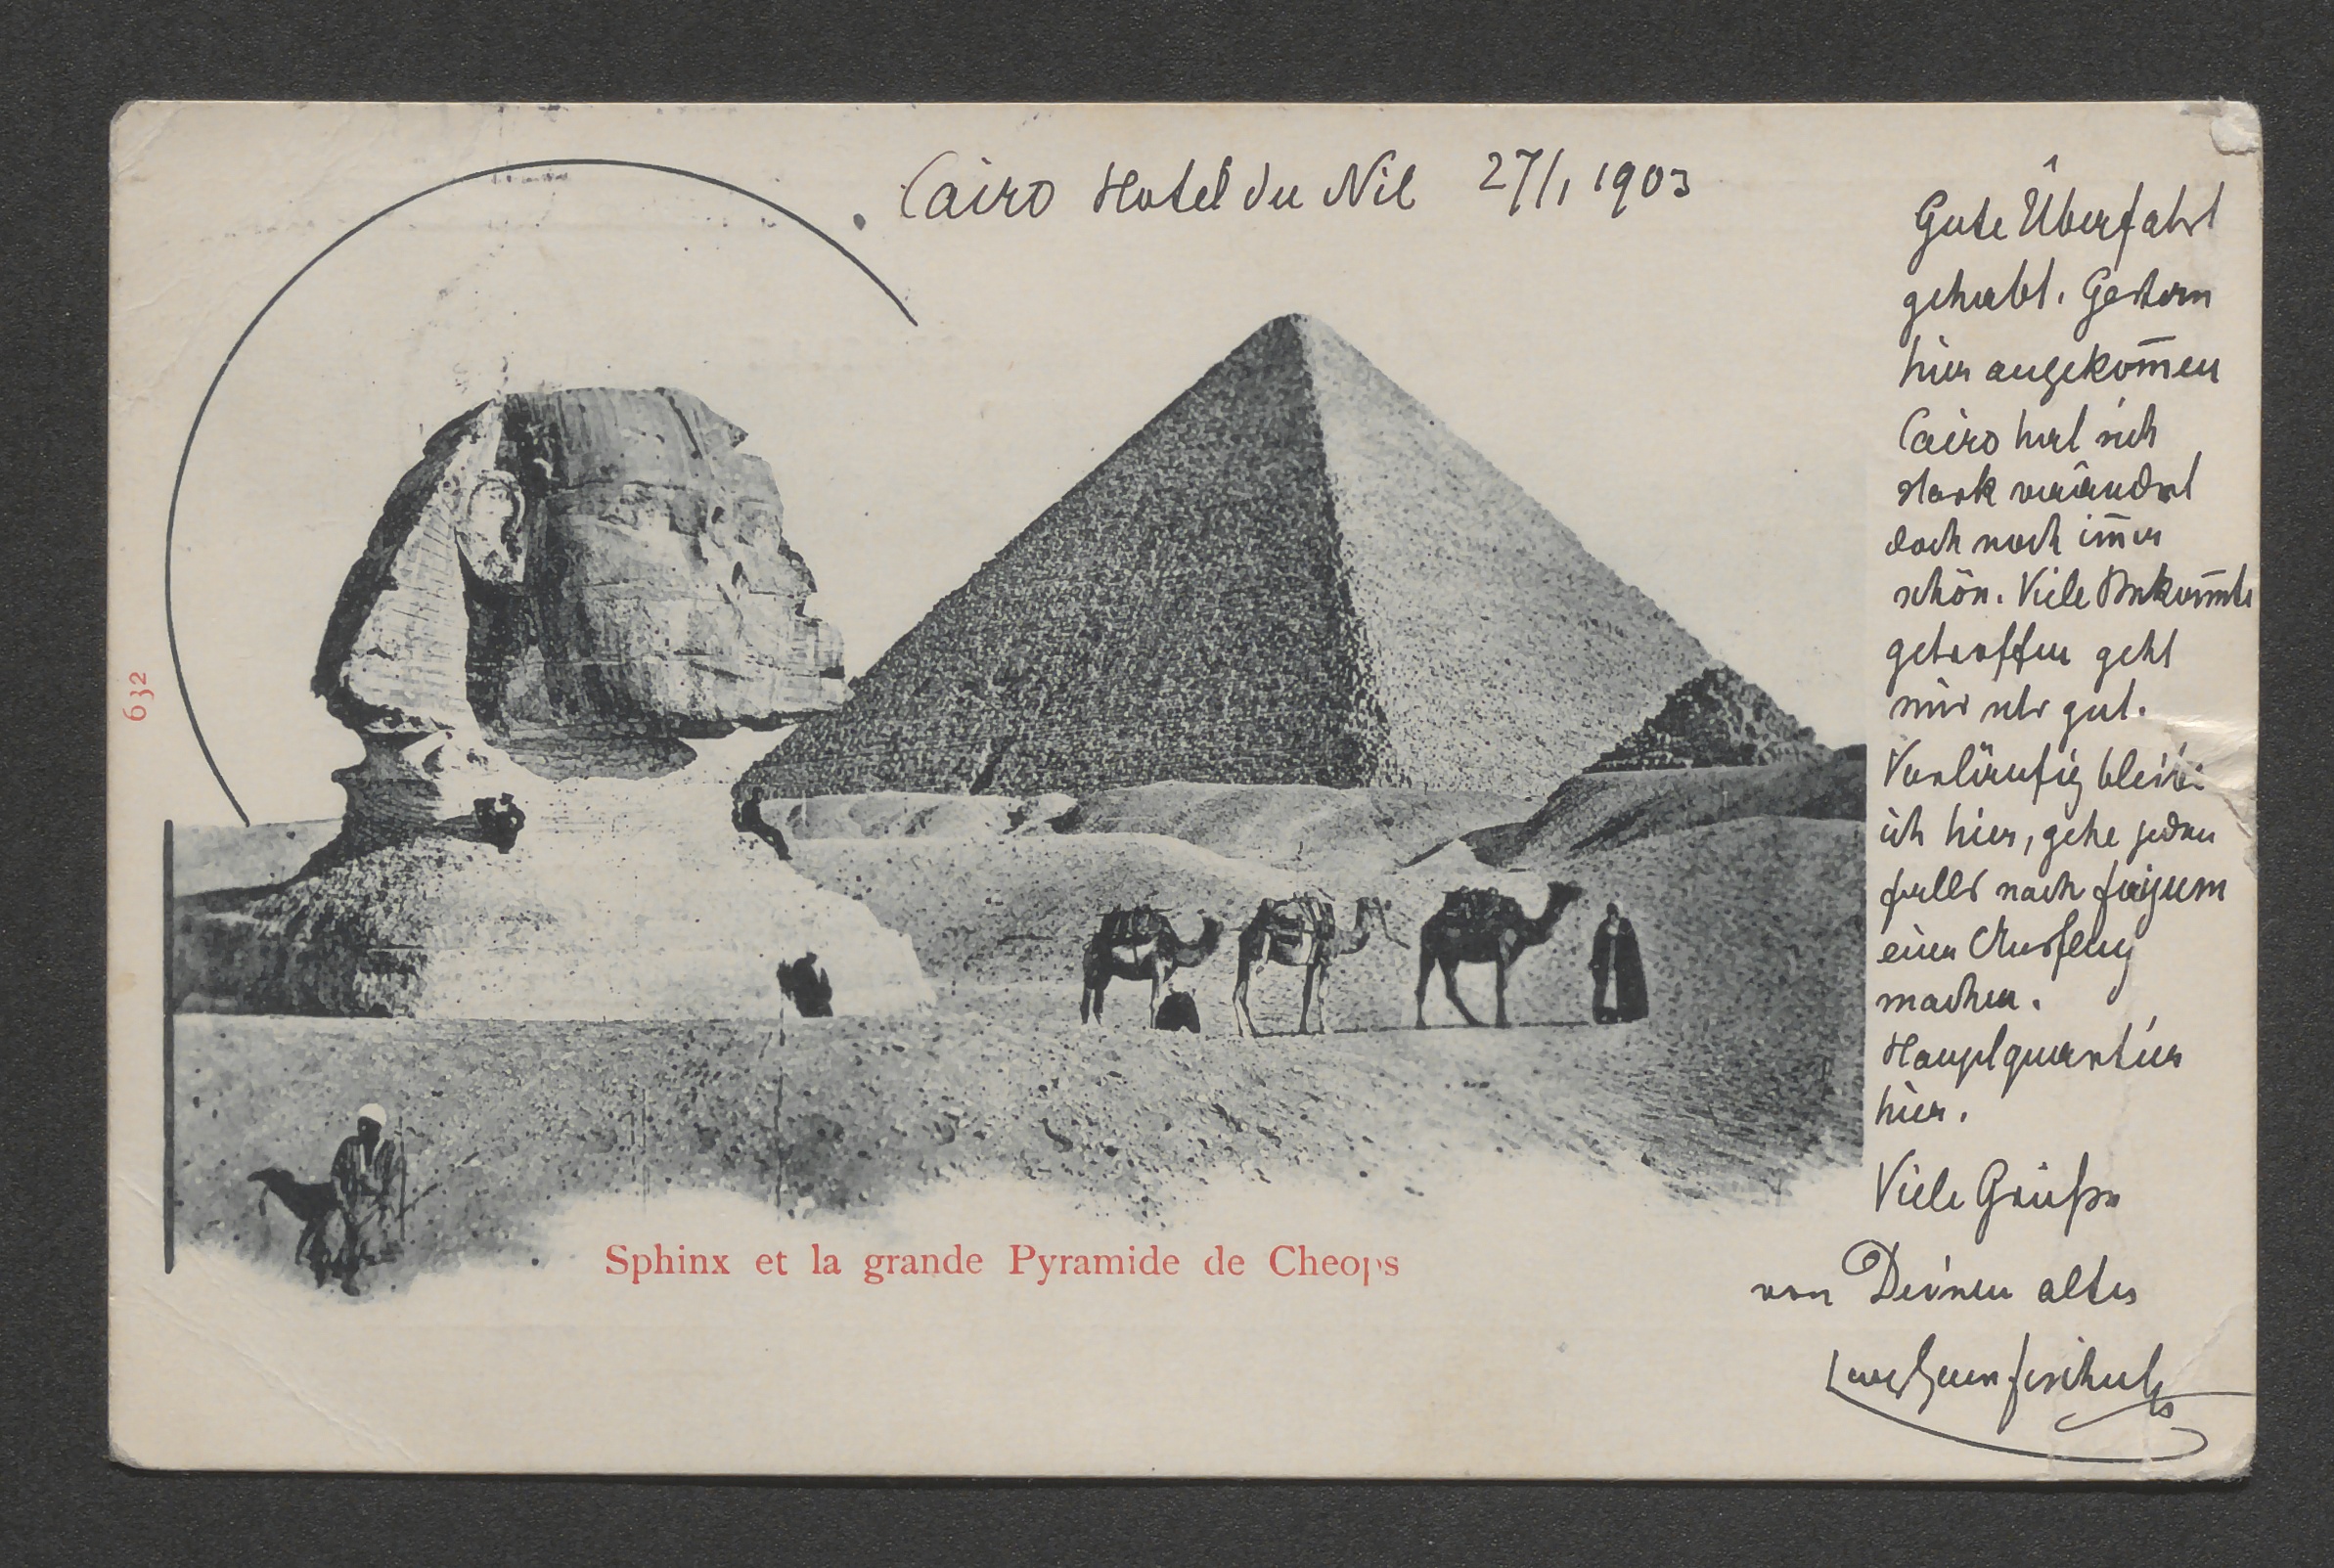 Cairo Hotel du Nil 27/1 1903
Gute Überfahrt
gehabt. Gestern
hier angekom̄en
Cairo hat sich
stark verändert
doch noch im̄er
schön. Viele Bekan̄nte
getroffen geht
mir sehr gut.
Vorläufig bleibe
ich hier, gehe jeden
falls nach Faijum
einen Ausflug
machen.
Hauptquartier
hier.
Viele Grüße
von Deinem alten
632
Sphinx et la grande Pyramide de Cheops